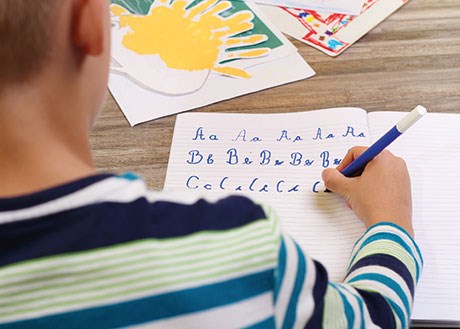 Aa Aa Aa Aa Aa
Bb Bb Bb Bb Bb
Cc Cc Cc Cc C